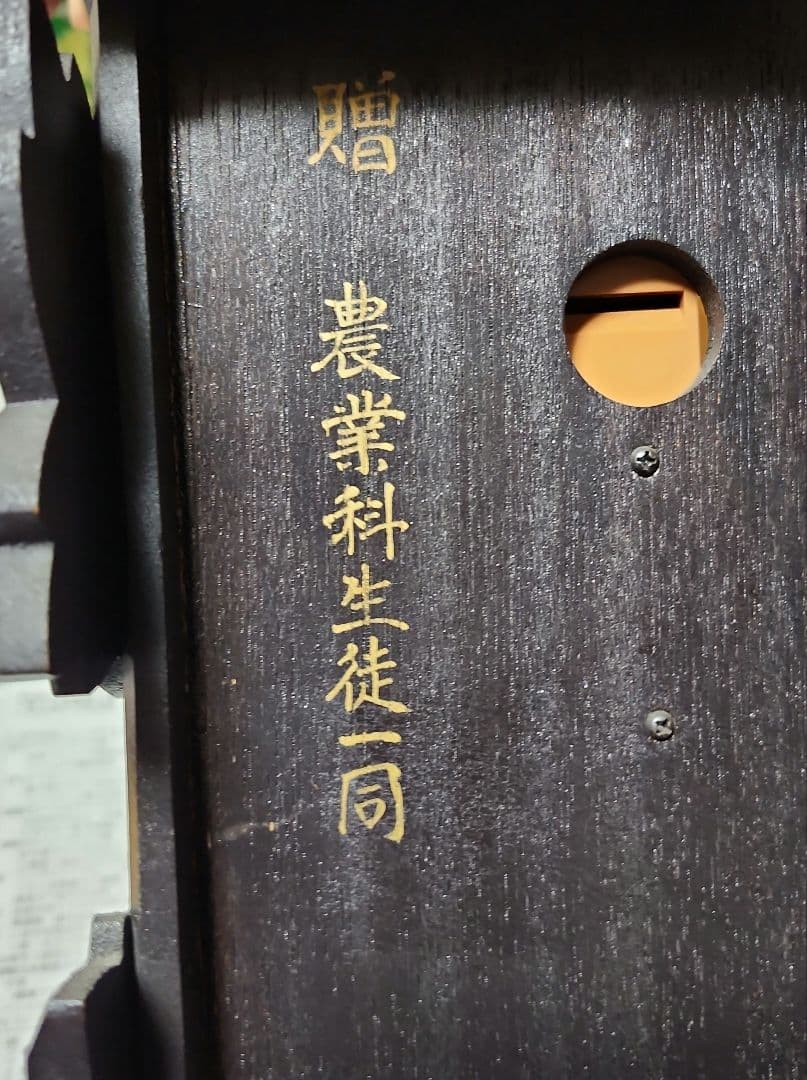 贈 農業科生徒一同